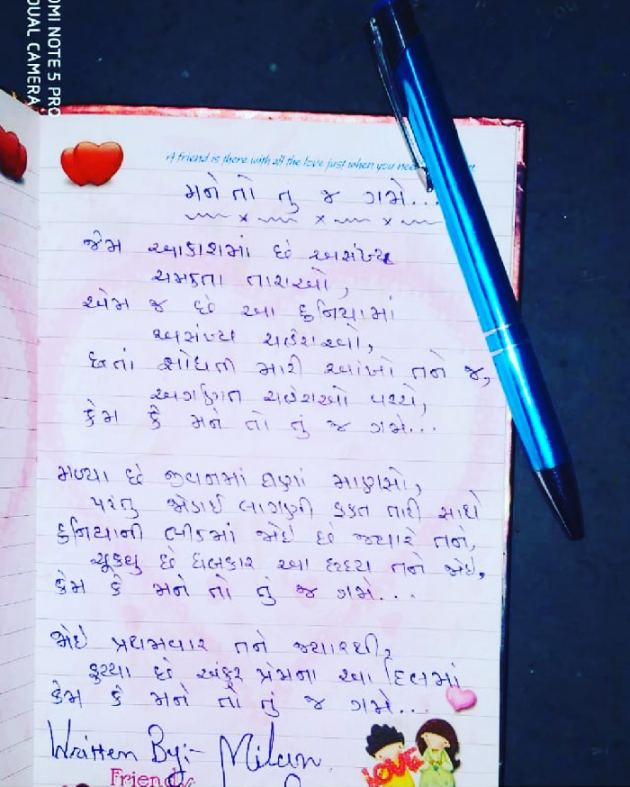 OMI NOTE 5 PRO
DUAL CAMERA
A friend is there with all the love just when you need
મને તો તુ જ ગમે...
જેમ આકાશમાં છે અસંખ્ય
ચમકતા તારાઓ,
એમ જ છે આ દુનિયામાં
અસંખ્ય ચહેરાઓ,
છતાં શોધતી મારી આંખો તને જ,
અગણિત ચહેરાઓ વચ્ચે,
કેમ કે મને તો તું જ ગમે...
મળ્યા છે જીવનમાં ઘણાં માણસો,
પરંતુ જોડાઈ લાગણી ફક્ત તારી સાથે
દુનિયાની ભીડમાં જોઈ છે જ્યારે તને,
ચૂક્યુ છે ધબકાર આ હૃદય તને જોઈ,
કેમ કે મને તો તું જ ગમે...
જોઈ પ્રથમવાર તને જ્યારથી,
ફુટ્યા છે અંકુર પ્રેમના આ દિલમાં
કેમ કે મને તો તું જ ગમે...
Written By:- Milan
Friend
LOVE